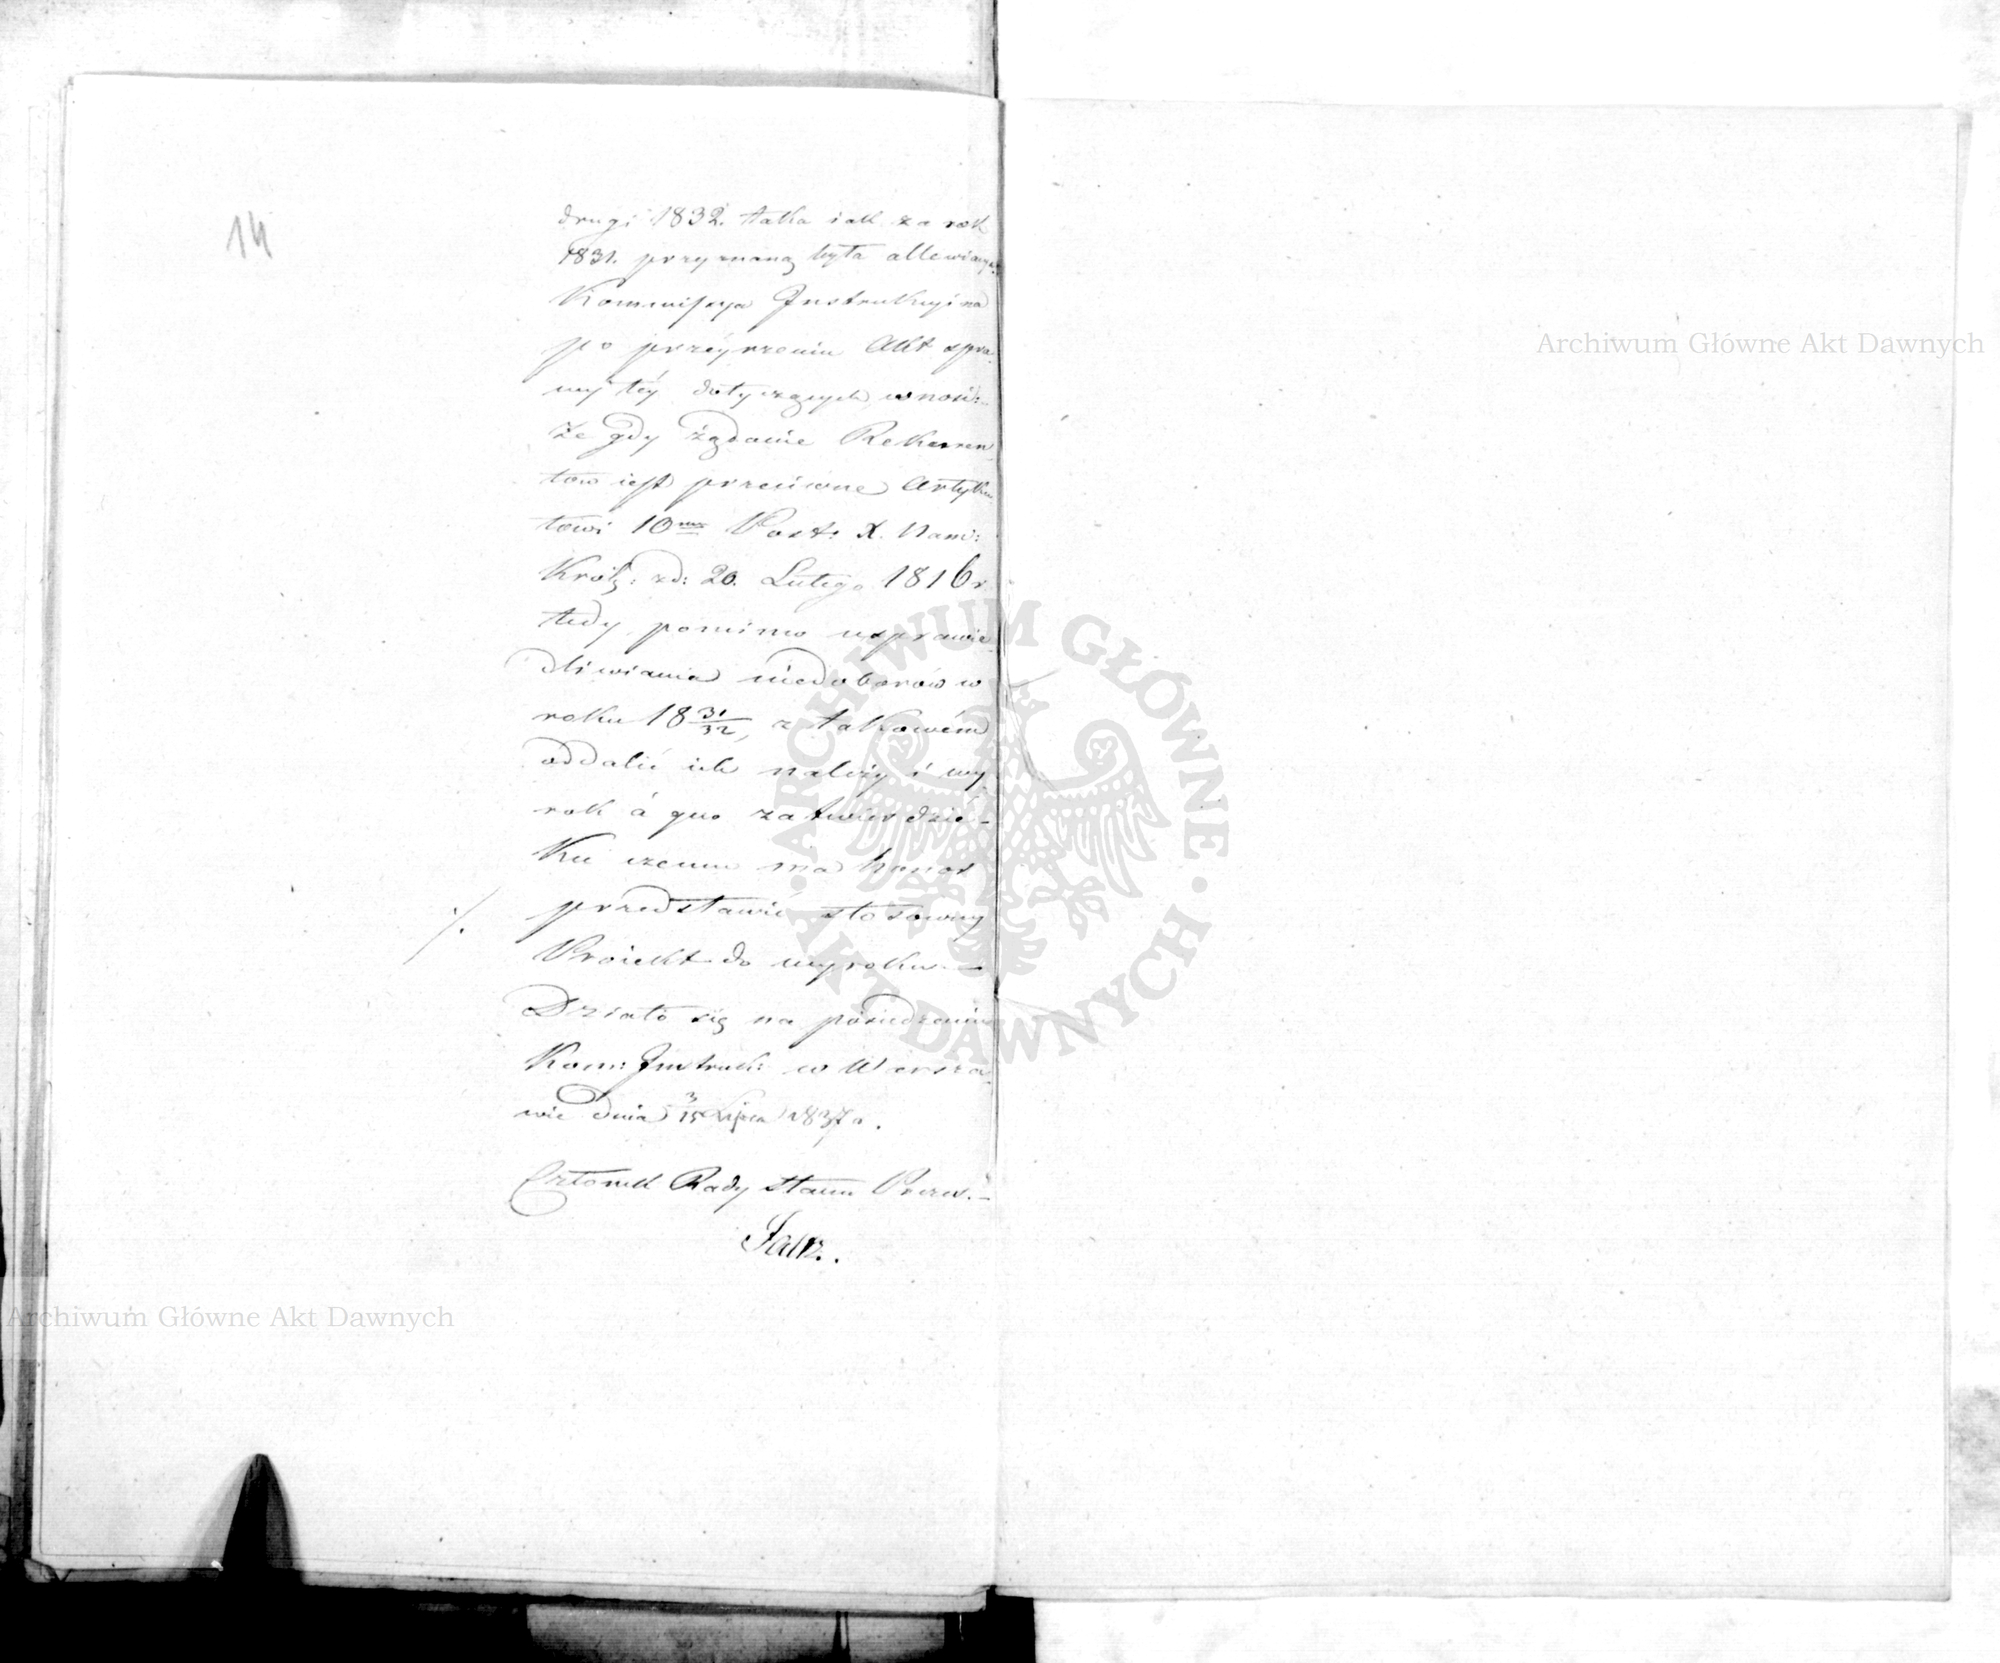 14
drugi 1832. taka iak za rok
1831. przyznaną była allewiacya
Kommissya Instrukcyina
po przéyrzeniu Akt spra
wy téy dotyczących wnosi:
Że gdy żądanie Rekurren
tów iest przeciwne Artyku
łowi 10mu Post: X. Nami:
Król: z d: 20. Lutego 1816 r
tedy pomimo usprawie
dliwiania niedoborów w
roku 18 31/32, z takowém
oddalić ich należy i wy
rok á quo zatwierdzić –
Ku czemu ma honor
przedstawić stosowny
Proiekt do wyroku. –
Działo się na posiedzeniu
Kom: Instruk: w Warsza
wie dnia 3/15 Lipca 1837 r.
Członek Rady Stanu Prezed. –
Archiwum Główne Akt Dawnych
Archiwum Główne Akt Dawnych
ARCHIWUM GŁÓWNE AKT DAWNYCH